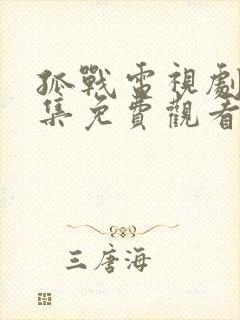 孤戰電視劇
集免費觀看
三唐海